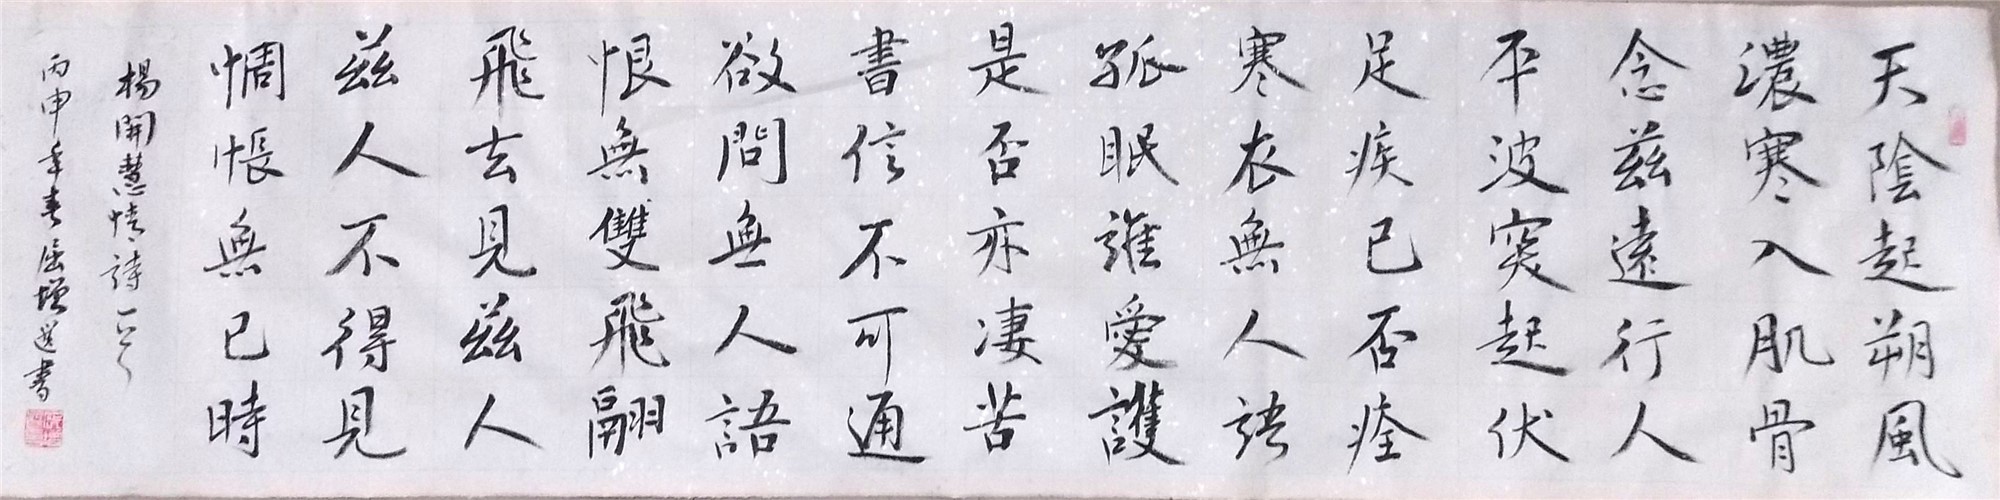 天陰起朔風
濃寒入肌骨
念茲遠行人
平波突起伏
足疾已否痊
寒衣無人語
孤眠誰愛護
是否亦凄苦
書信不可通
欲問無人語
恨無雙飛翮
飛去見茲人
茲人不得見
惆悵無已時
楊開慧情詩一首
丙申年春屈增選書